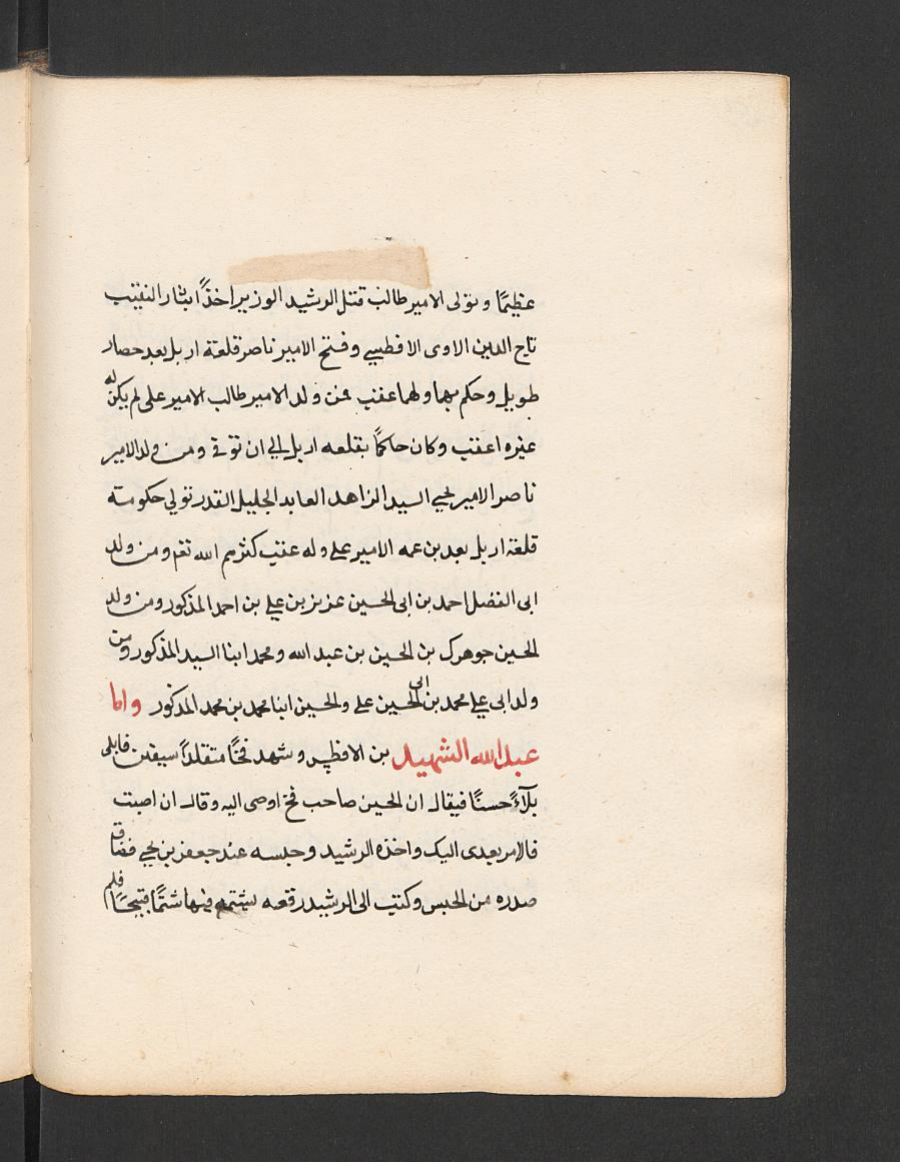 عظيمًا وتولى الامير طالب قتل الرشيد الوزير اخذًا بثار النقيب
تاج الدين الاوى الافطسي وفتح الامير ناصر قلعة اربل بعد حصار
طويل وحكم بهما ولهما عقب فمن ولد الامير طالب الامير على لم يكن له
غيره اعقب وكان حاكمًا بقلعه اربل الى ان توفى ومن ولد الامير
ناصر الامير يحيي السيد الزاهد العابد الجليل القدر تولي حكومته
قلعة اربل بعد بن عمه الامير علي وله عقب كثرهم الله تقم ومن ولد
ابى الفضل احمد بن ابى الحسين عزيز بن علي بن احمد المذكور ومن ولد
الحسين جوهرك بن الحسين بن عبد الله ومحمد ابنا السيد المذكور ومن
ولد ابى علي محمد بن ابى الحسين على والحسين ابنا محمد بن محمد المذكور واما
عبد الله الشهيد بن الافطس وشهد فخًا متقلدًا سيفين فابلى
بلآءً حسنًا فيقال ان الحسين صاحب فخ اوصى اليه وقال ان اصبت
فالامر بعدى اليك واخذه الرشيد وحبسه عند جعفر بن يحيي فضاق
صدره من الحبس وكتب الى الرشيد رقعه يشتمه فيها شتمًا قبيحًا فلم